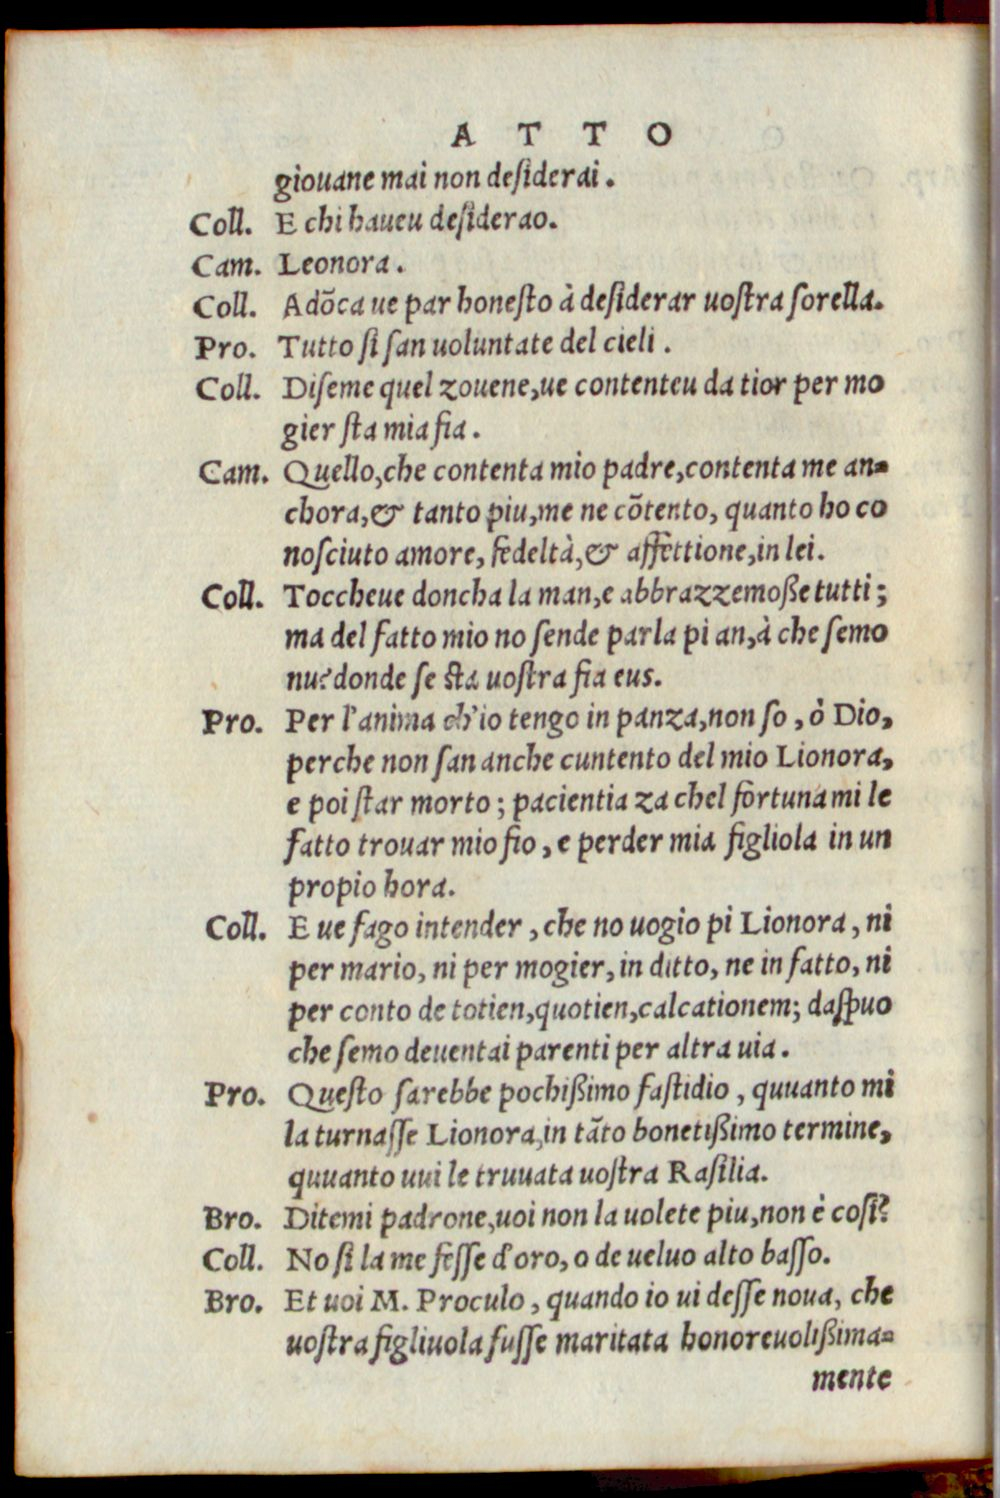 A T T O
giouane mai non desiderai.
Coll. E chi haueu desiderao.
Cam. Leonora.
Coll. Adõca ue par honesto à desiderar uostra sorella.
Pro. Tutto si san uoluntate del cieli.
Coll. Diseme quel zouene, ue contenteu da tior per mo
gier sta mia fia.
Cam. Quello, che contenta mio padre, contenta me an-
chora, & tanto piu, me ne cõtento, quanto ho co
nosciuto amore, fedeltà, & affettione, in lei.
Coll. Toccheue doncha la man, e abbrazzemoße tutti;
ma del fatto mio no sende parla pi an, à che semo
nu? donde se sta uostra fia eus.
Pro. Per l'anima ch'io tengo in panza, non so, ò Dio,
perche non san anche cuntento del mio Lionora,
e poi star morto; pacientia za chel fortuna mi le
fatto trouar mio fio, e perder mia figliola in un
propio hora.
Coll. E ue fago intender, che no uogio pi Lionora, ni
per mario, ni per mogier, in ditto, ne in fatto, ni
per conto de totien, quotien, calcationem; daspuo
che semo deuentai parenti per altra uia.
Pro. Questo sarebbe pochißimo fastidio, quuanto mi
la turnasse Lionora, in tãto bonetißimo termine,
quuanto uui le truuata uostra Rasilia.
Bro. Ditemi padrone, uoi non la uolete piu, non è cosi?
Coll. No si la me fesse d'oro, o de ueluo alto basso.
Bro. Et uoi M. Proculo, quando io ui desse noua, che
uostra figliuola fusse maritata honoreuolißima-
mente